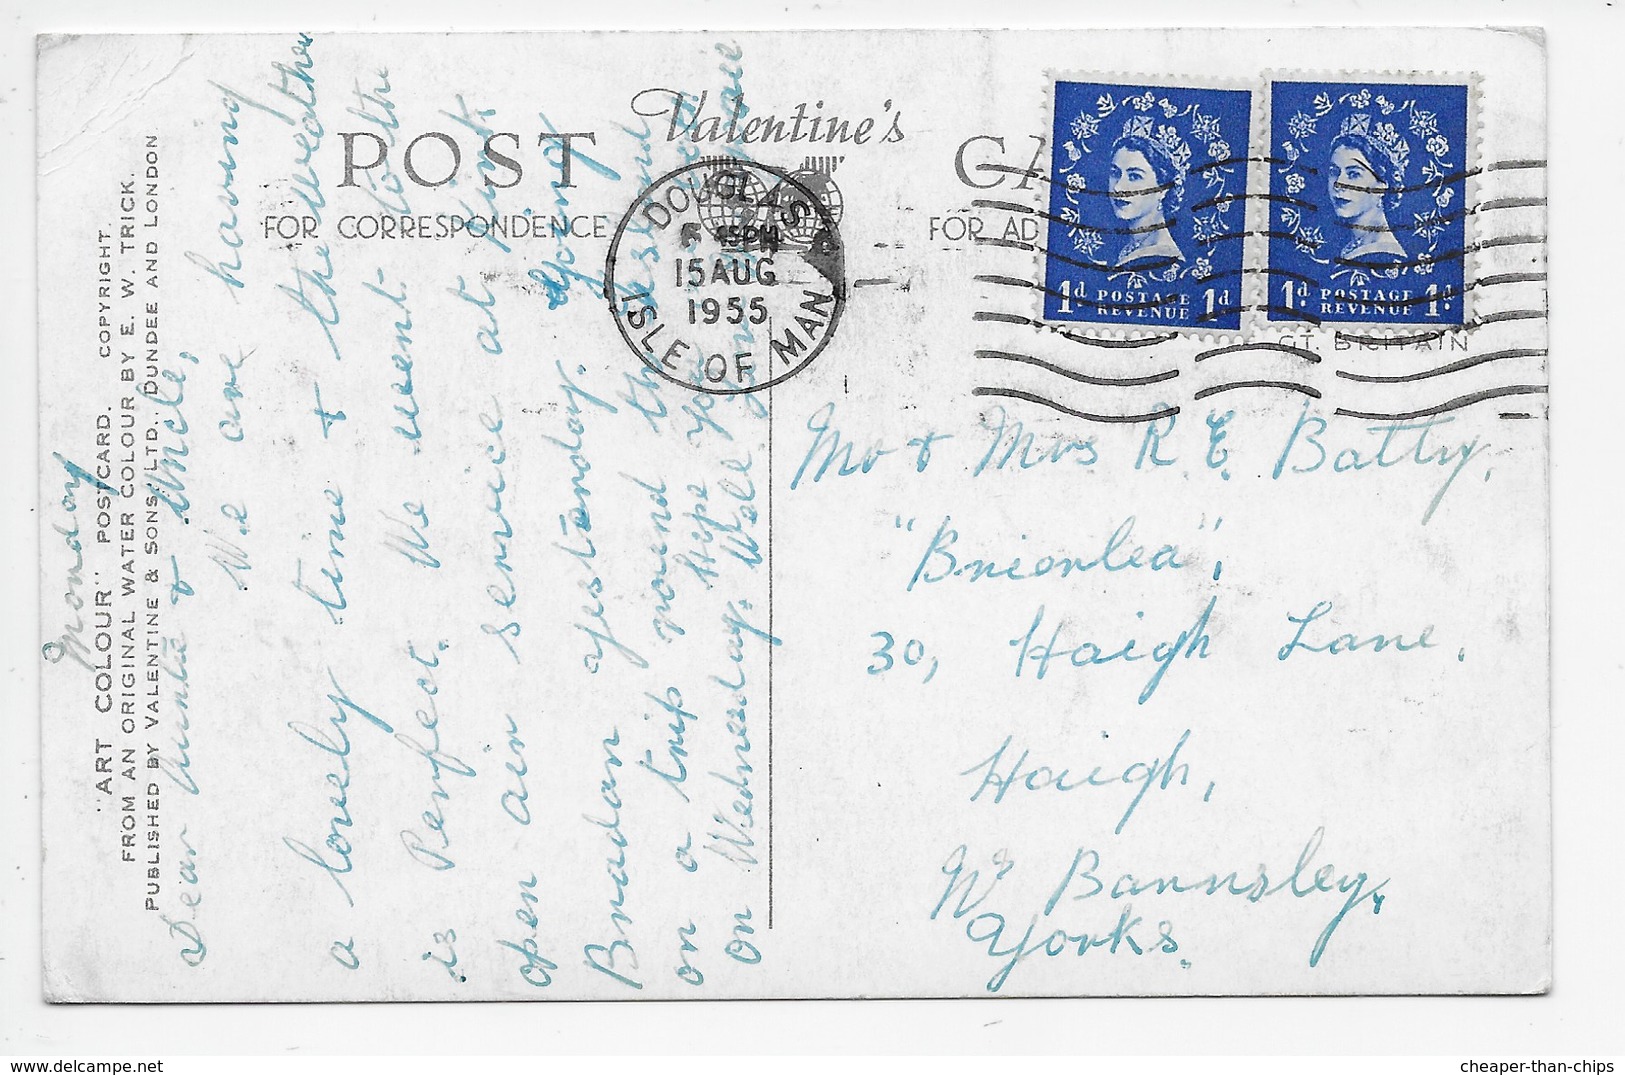 "ART COLOUR" POSTCARD. COPYRIGHT.
FROM AN ORIGINAL WATER COLOUR BY E. W. TRICK.
PUBLISHED BY VALENTINE & SONS, LTD., DUNDEE AND LONDON
POST
Valentine's
FOR CORRESPONDENCE
FOR AD
GT. BRITAIN
DOUGLAS
45PM
15 AUG
1955
ISLE OF MAN
1d POSTAGE REVENUE 1d
1d POSTAGE REVENUE 1d
Monday
Dear Auntie & Uncle,
We are having
a lovely time & the weather
is Perfect. We went to the
open air service at Kirk
Braddan yesterday. Going
on a trip round the Island
Hope you
on Wednesday. Well
Mr & Mrs R. E. Batty,
"Brierlea",
30, Haigh Lane,
Haigh,
Nr Barnsley,
Yorks.
cheaper-than-chips